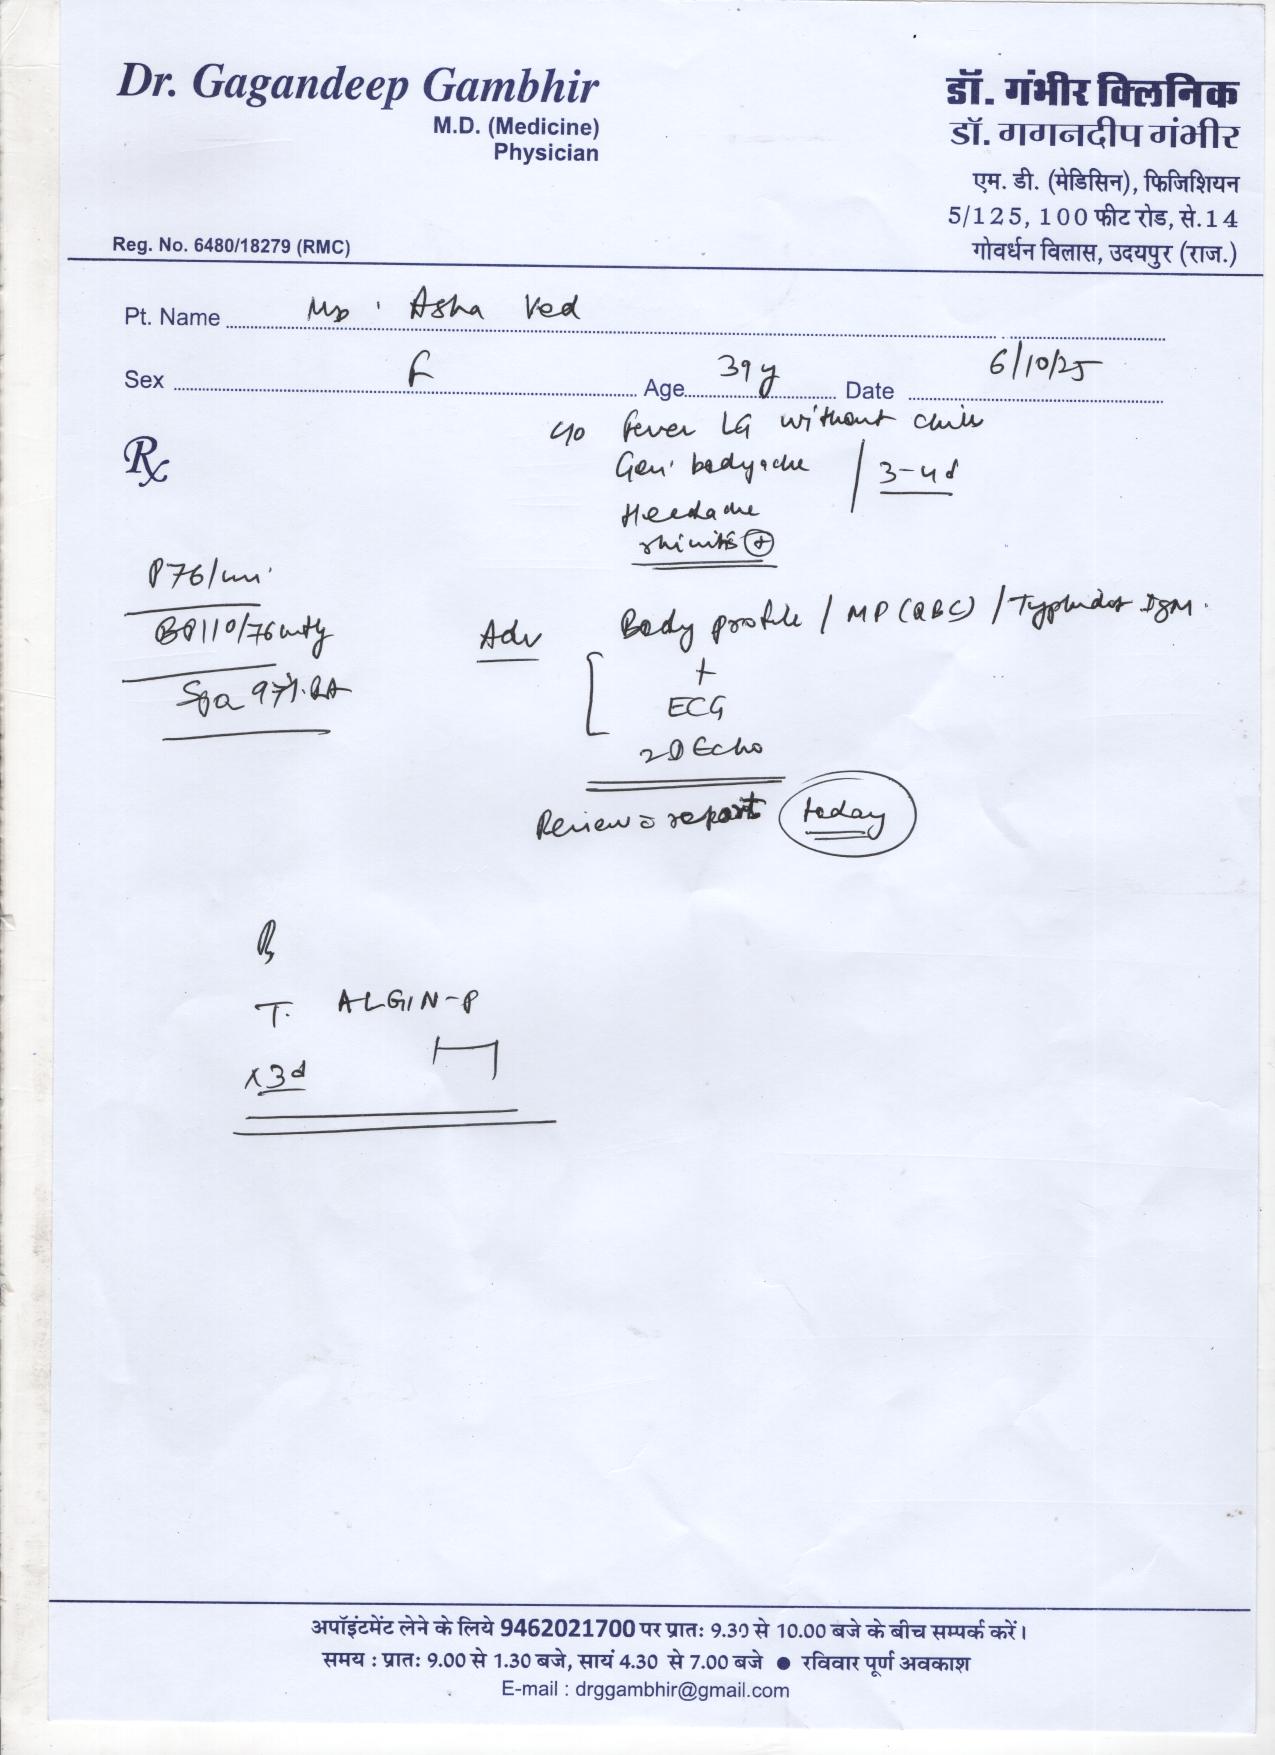 Dr. Gagandeep Gambhir
M.D. (Medicine)
Physician
Reg. No. 6480/18279 (RMC)
डॉ. गंभीर क्लिनिक
डॉ. गगनदीप गंभीर
एम. डी. (मेडिसिन), फिजिशियन
5/125, 100 फीट रोड, से.14
गोवर्धन विलास, उदयपुर (राज.)
Pt. Name Asha Ved
Sex F Age 39y Date 6/10/25
Rx
c/o Fever LG without chills
Gen. bodyache
3-4d
Headache
rhinitis +
P 76/min
BP 110/76 mmHg
SpO2 97% RA
Adv Body profile / MP (QBC) / Typhidot IgM.
+
ECG
2D Echo
Review c report today
Rx
T. ALGIN-P
x 3d
अपॉइंटमेंट लेने के लिये 9462021700 पर प्रातः 9.30 से 10.00 बजे के बीच सम्पर्क करें।
समय : प्रातः 9.00 से 1.30 बजे, सायं 4.30 से 7.00 बजे ● रविवार पूर्ण अवकाश
E-mail : drggambhir@gmail.com